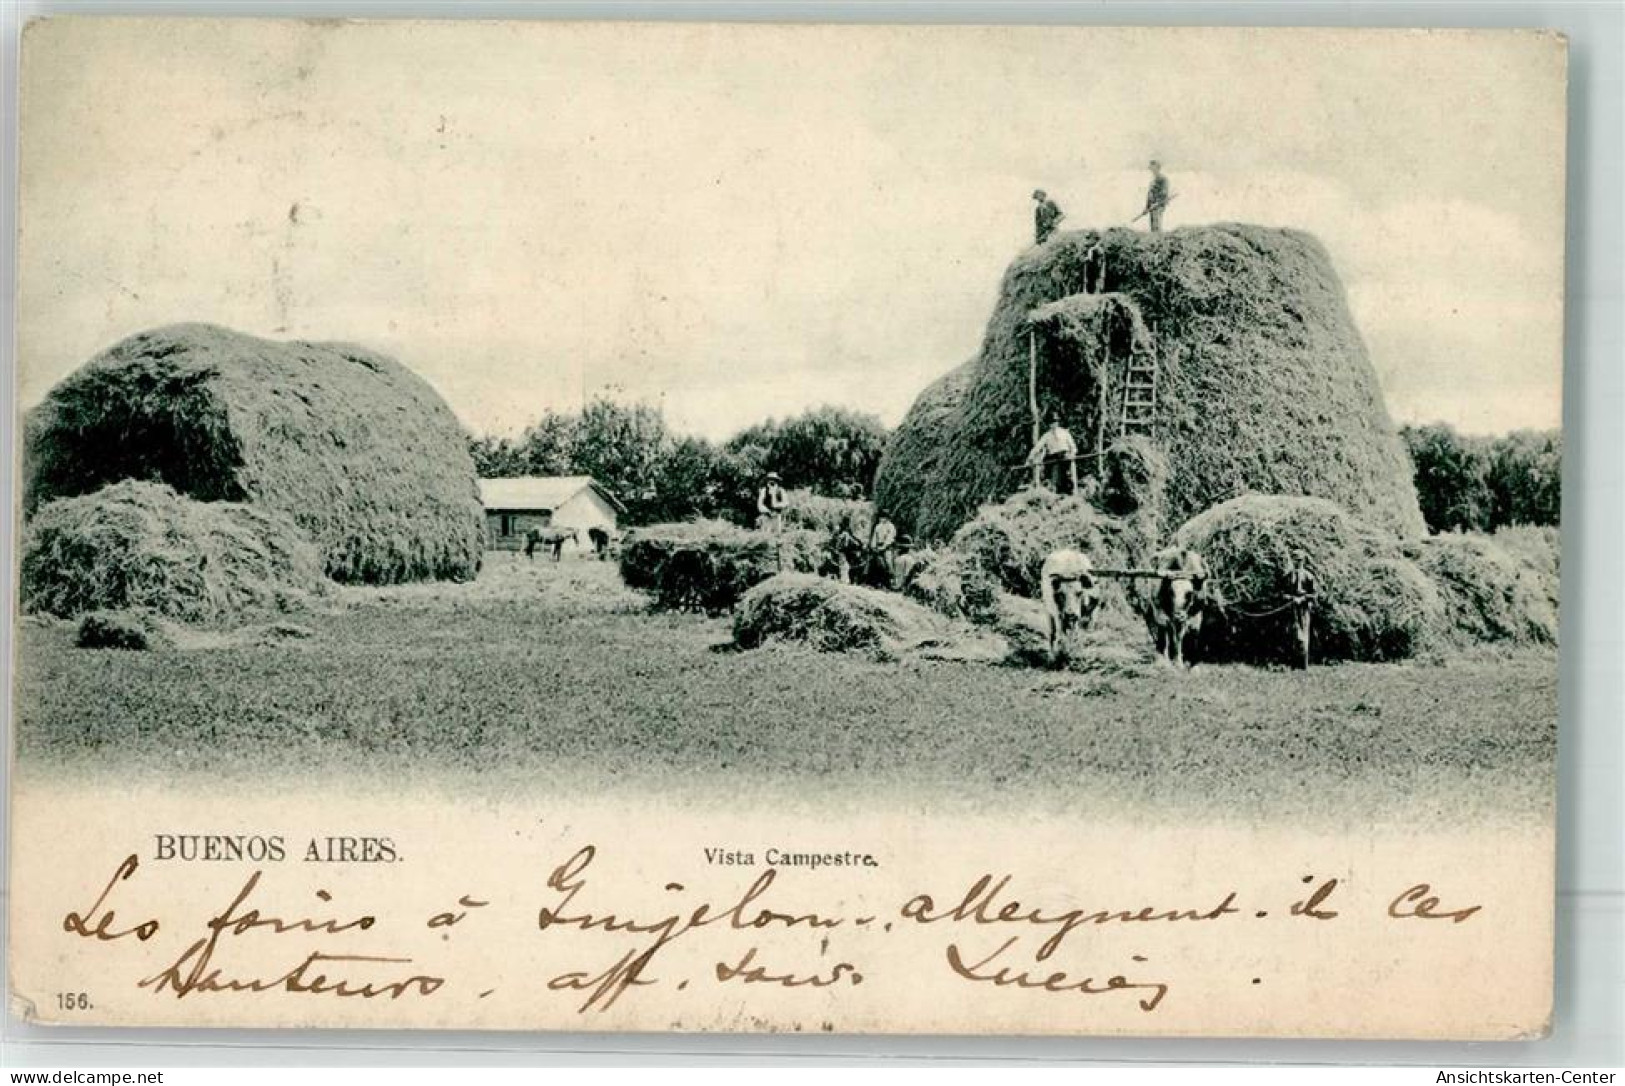 BUENOS AIRES.
Vista Campestre.
Les foins à Gingelom. atteignent-ils Ces
hauteurs. aff.
156.
www.delcampe.net
Ansichtskarten-Center